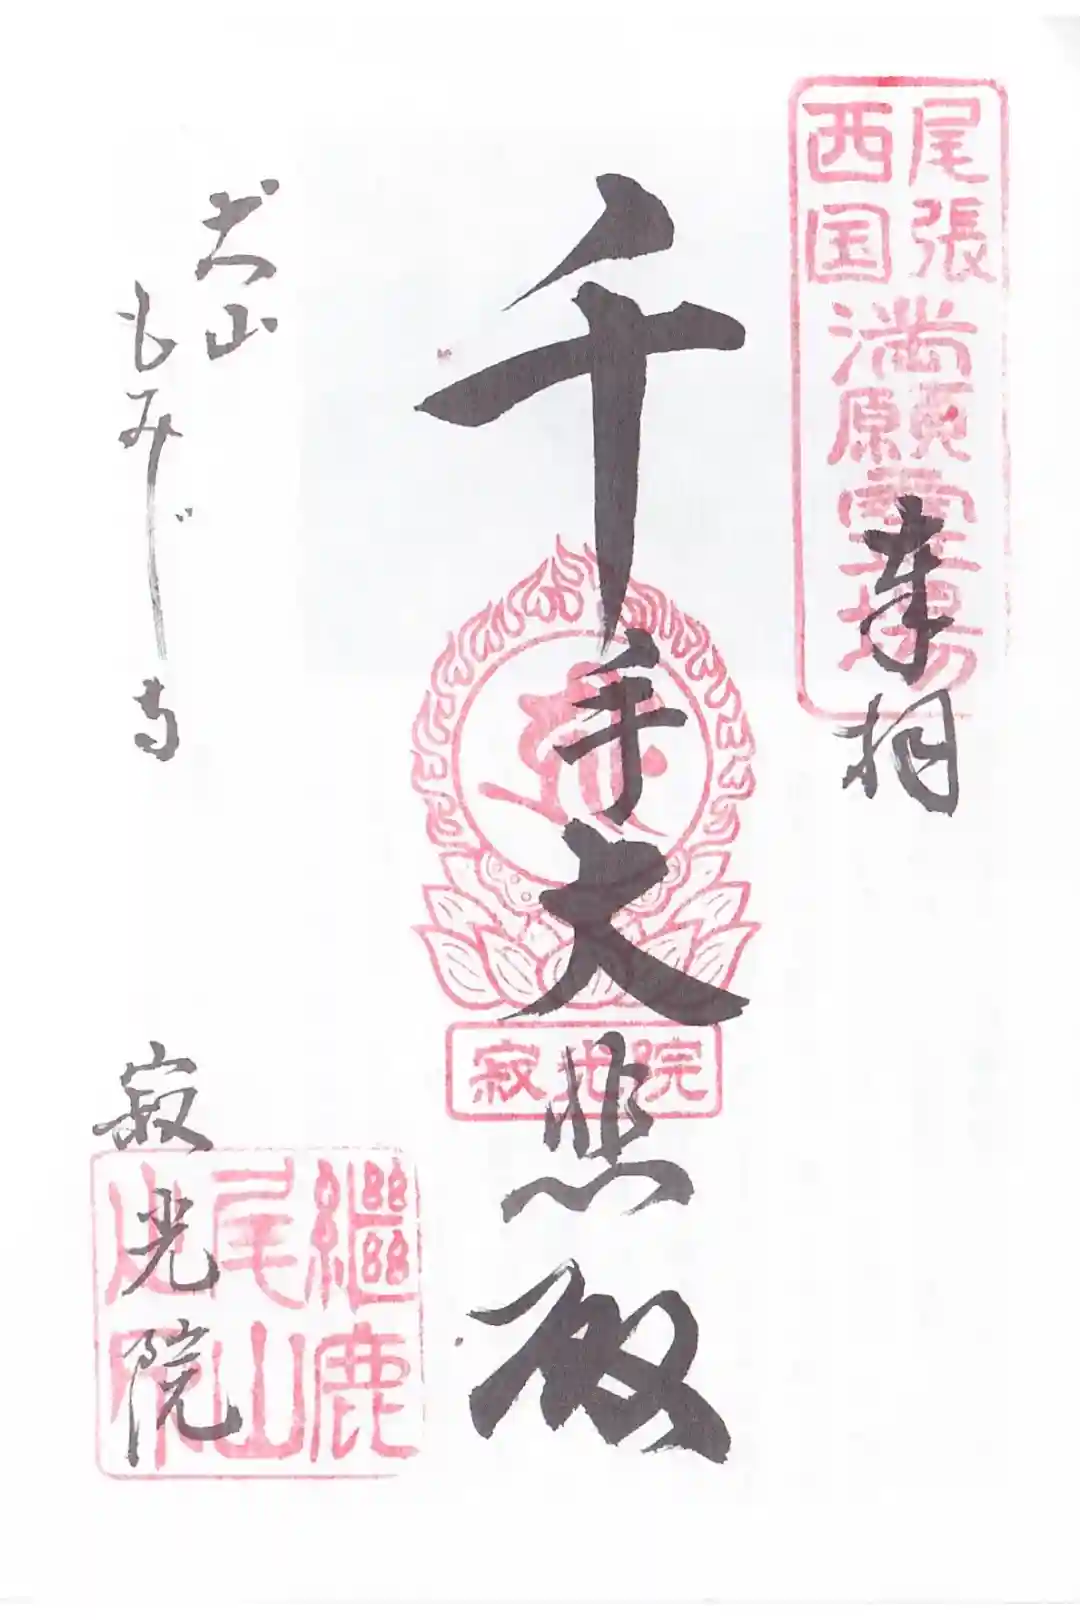 尾張
西国
満願霊場
奉拝
千手大悲殿
寂光院
犬山
もみじ寺
寂光院
継鹿
尾山